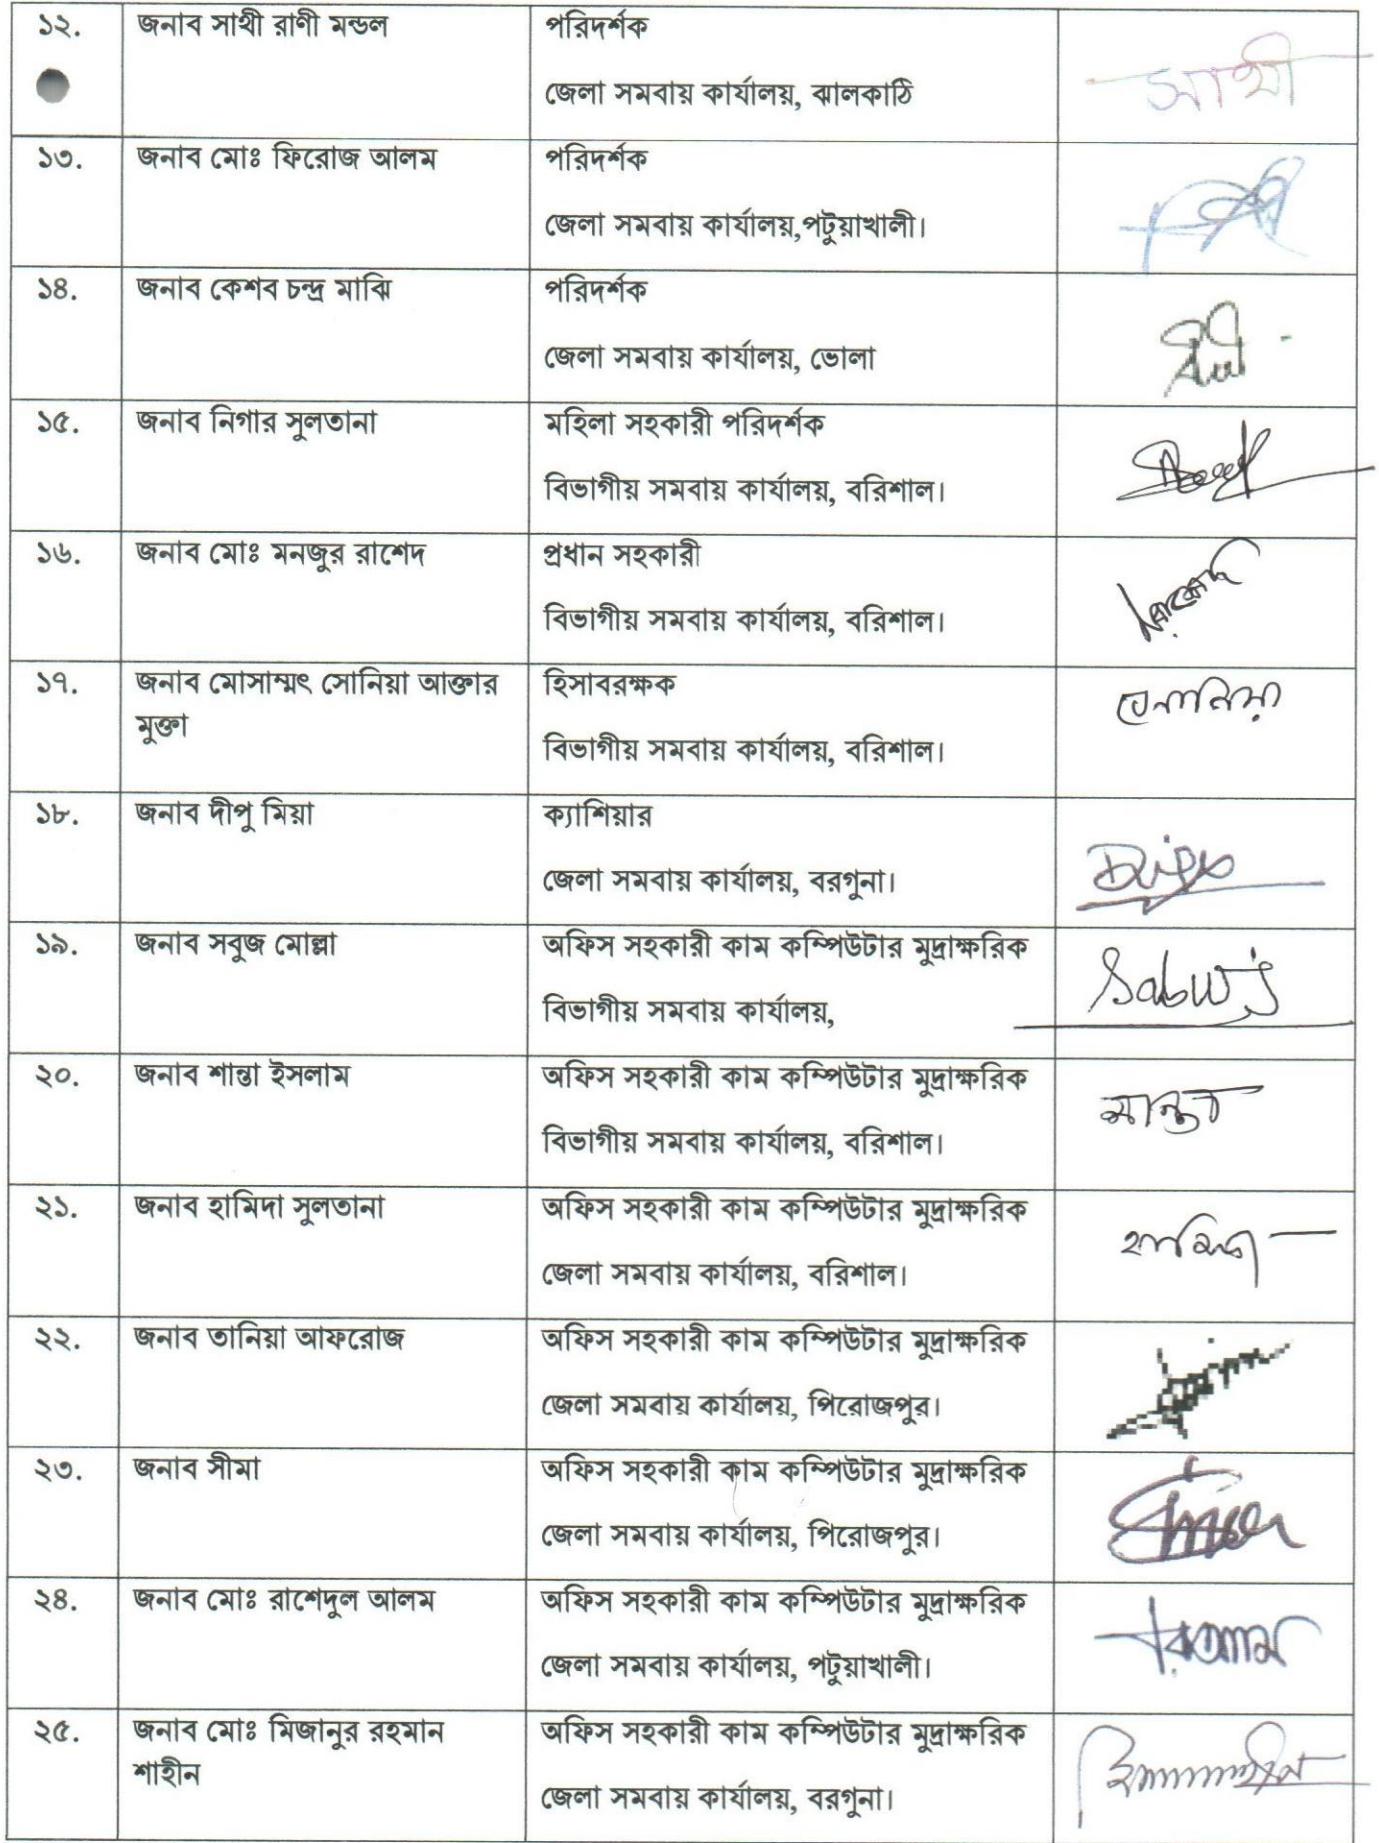 ১২. জনাব সাথী রাণী মন্ডল পরিদর্শক
জেলা সমবায় কার্যালয়, ঝালকাঠি সাথী
১৩. জনাব মোঃ ফিরোজ আলম পরিদর্শক
জেলা সমবায় কার্যালয়,পটুয়াখালী।
১৪. জনাব কেশব চন্দ্র মাঝি পরিদর্শক
জেলা সমবায় কার্যালয়, ভোলা
১৫. জনাব নিগার সুলতানা মহিলা সহকারী পরিদর্শক
বিভাগীয় সমবায় কার্যালয়, বরিশাল।
১৬. জনাব মোঃ মনজুর রাশেদ প্রধান সহকারী
বিভাগীয় সমবায় কার্যালয়, বরিশাল।
১৭. জনাব মোসাম্মৎ সোনিয়া আক্তার হিসাবরক্ষক সোনিয়া
মুক্তা
বিভাগীয় সমবায় কার্যালয়, বরিশাল।
১৮. জনাব দীপু মিয়া ক্যাশিয়ার
জেলা সমবায় কার্যালয়, বরগুনা। Dipu
১৯. জনাব সবুজ মোল্লা অফিস সহকারী কাম কম্পিউটার মুদ্রাক্ষরিক
বিভাগীয় সমবায় কার্যালয়, Sabuj
২০. জনাব শান্তা ইসলাম অফিস সহকারী কাম কম্পিউটার মুদ্রাক্ষরিক
বিভাগীয় সমবায় কার্যালয়, বরিশাল। শান্তা
২১. জনাব হামিদা সুলতানা অফিস সহকারী কাম কম্পিউটার মুদ্রাক্ষরিক
জেলা সমবায় কার্যালয়, বরিশাল। হামিদা
২২. জনাব তানিয়া আফরোজ অফিস সহকারী কাম কম্পিউটার মুদ্রাক্ষরিক
জেলা সমবায় কার্যালয়, পিরোজপুর।
২৩. জনাব সীমা অফিস সহকারী কাম কম্পিউটার মুদ্রাক্ষরিক
জেলা সমবায় কার্যালয়, পিরোজপুর।
২৪. জনাব মোঃ রাশেদুল আলম অফিস সহকারী কাম কম্পিউটার মুদ্রাক্ষরিক
জেলা সমবায় কার্যালয়, পটুয়াখালী।
২৫. জনাব মোঃ মিজানুর রহমান অফিস সহকারী কাম কম্পিউটার মুদ্রাক্ষরিক
শাহীন
জেলা সমবায় কার্যালয়, বরগুনা।